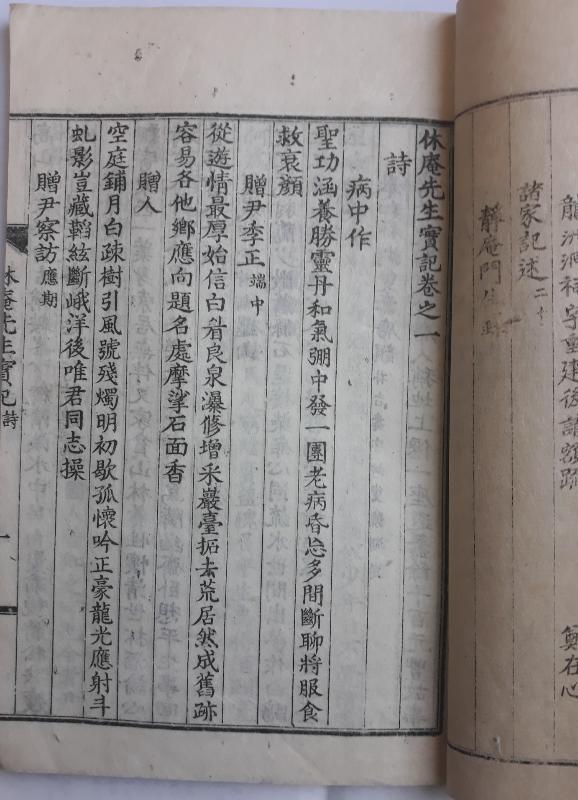 龍洲洞祠宇重建後請額疏
諸家記述二十
靜庵門生
鄭在心
休庵先生實記卷之一
詩
病中作
聖功涵養勝靈丹和氣弸中發一團老病昏忘多間斷聊將服食
救衰顔
贈尹李正端中
從遊情最厚始信白頭良泉瀑修增采巖臺拓去荒居然成舊跡
容易各他鄉應向題名處摩挲石面香
贈人
空庭鋪月白疎樹引風號殘燭明初歇孤懷吟正豪龍光應射斗
虬影豈藏韜絃斷峨洋後唯君同志操
贈尹察訪應期
休庵先生實記 詩 一